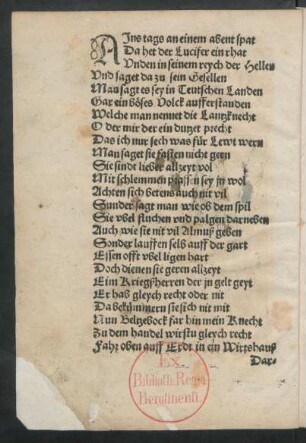 AIns tags an einem abent spat
Da het der Lucifer ein rhat
Vnden in seinem reych der Hellen
Vnd saget da zu sein Gesellen
Man sagt es sey in Teutschen Landen
Gar ein böses Volck aufferstanden
Welche man nennet die Lantzknecht
O der mir der ein dutzet precht
Das ich nur sech was für Lewt wern
Man saget sie fasten nicht gern
Sie sindt lieber allzeyt vol
Mit schlemmen prassen sey in wol
Achten sich betens auch nit vil
Sunder sagt man wie ob dem spil
Sie vbel fluchen vnd palgen darneben
Auch wie sie nit vil Almuß geben
Sonder lauffen selb auff der gart
Essen offt vbel ligen hart
Doch dienen sie geren allzeyt
Eim Kriegsherren der jn gelt geyt
Er hab gleych recht oder nit
Da bekümmern sie sich nit mit
Nun Beltzebock far hin mein Knecht
Zu dem handel wirstu gleych recht
Fahr oben auff Erdt in ein Wirtshauß
Dar-
EX
Biblioth. Regia
Berolinenſi.